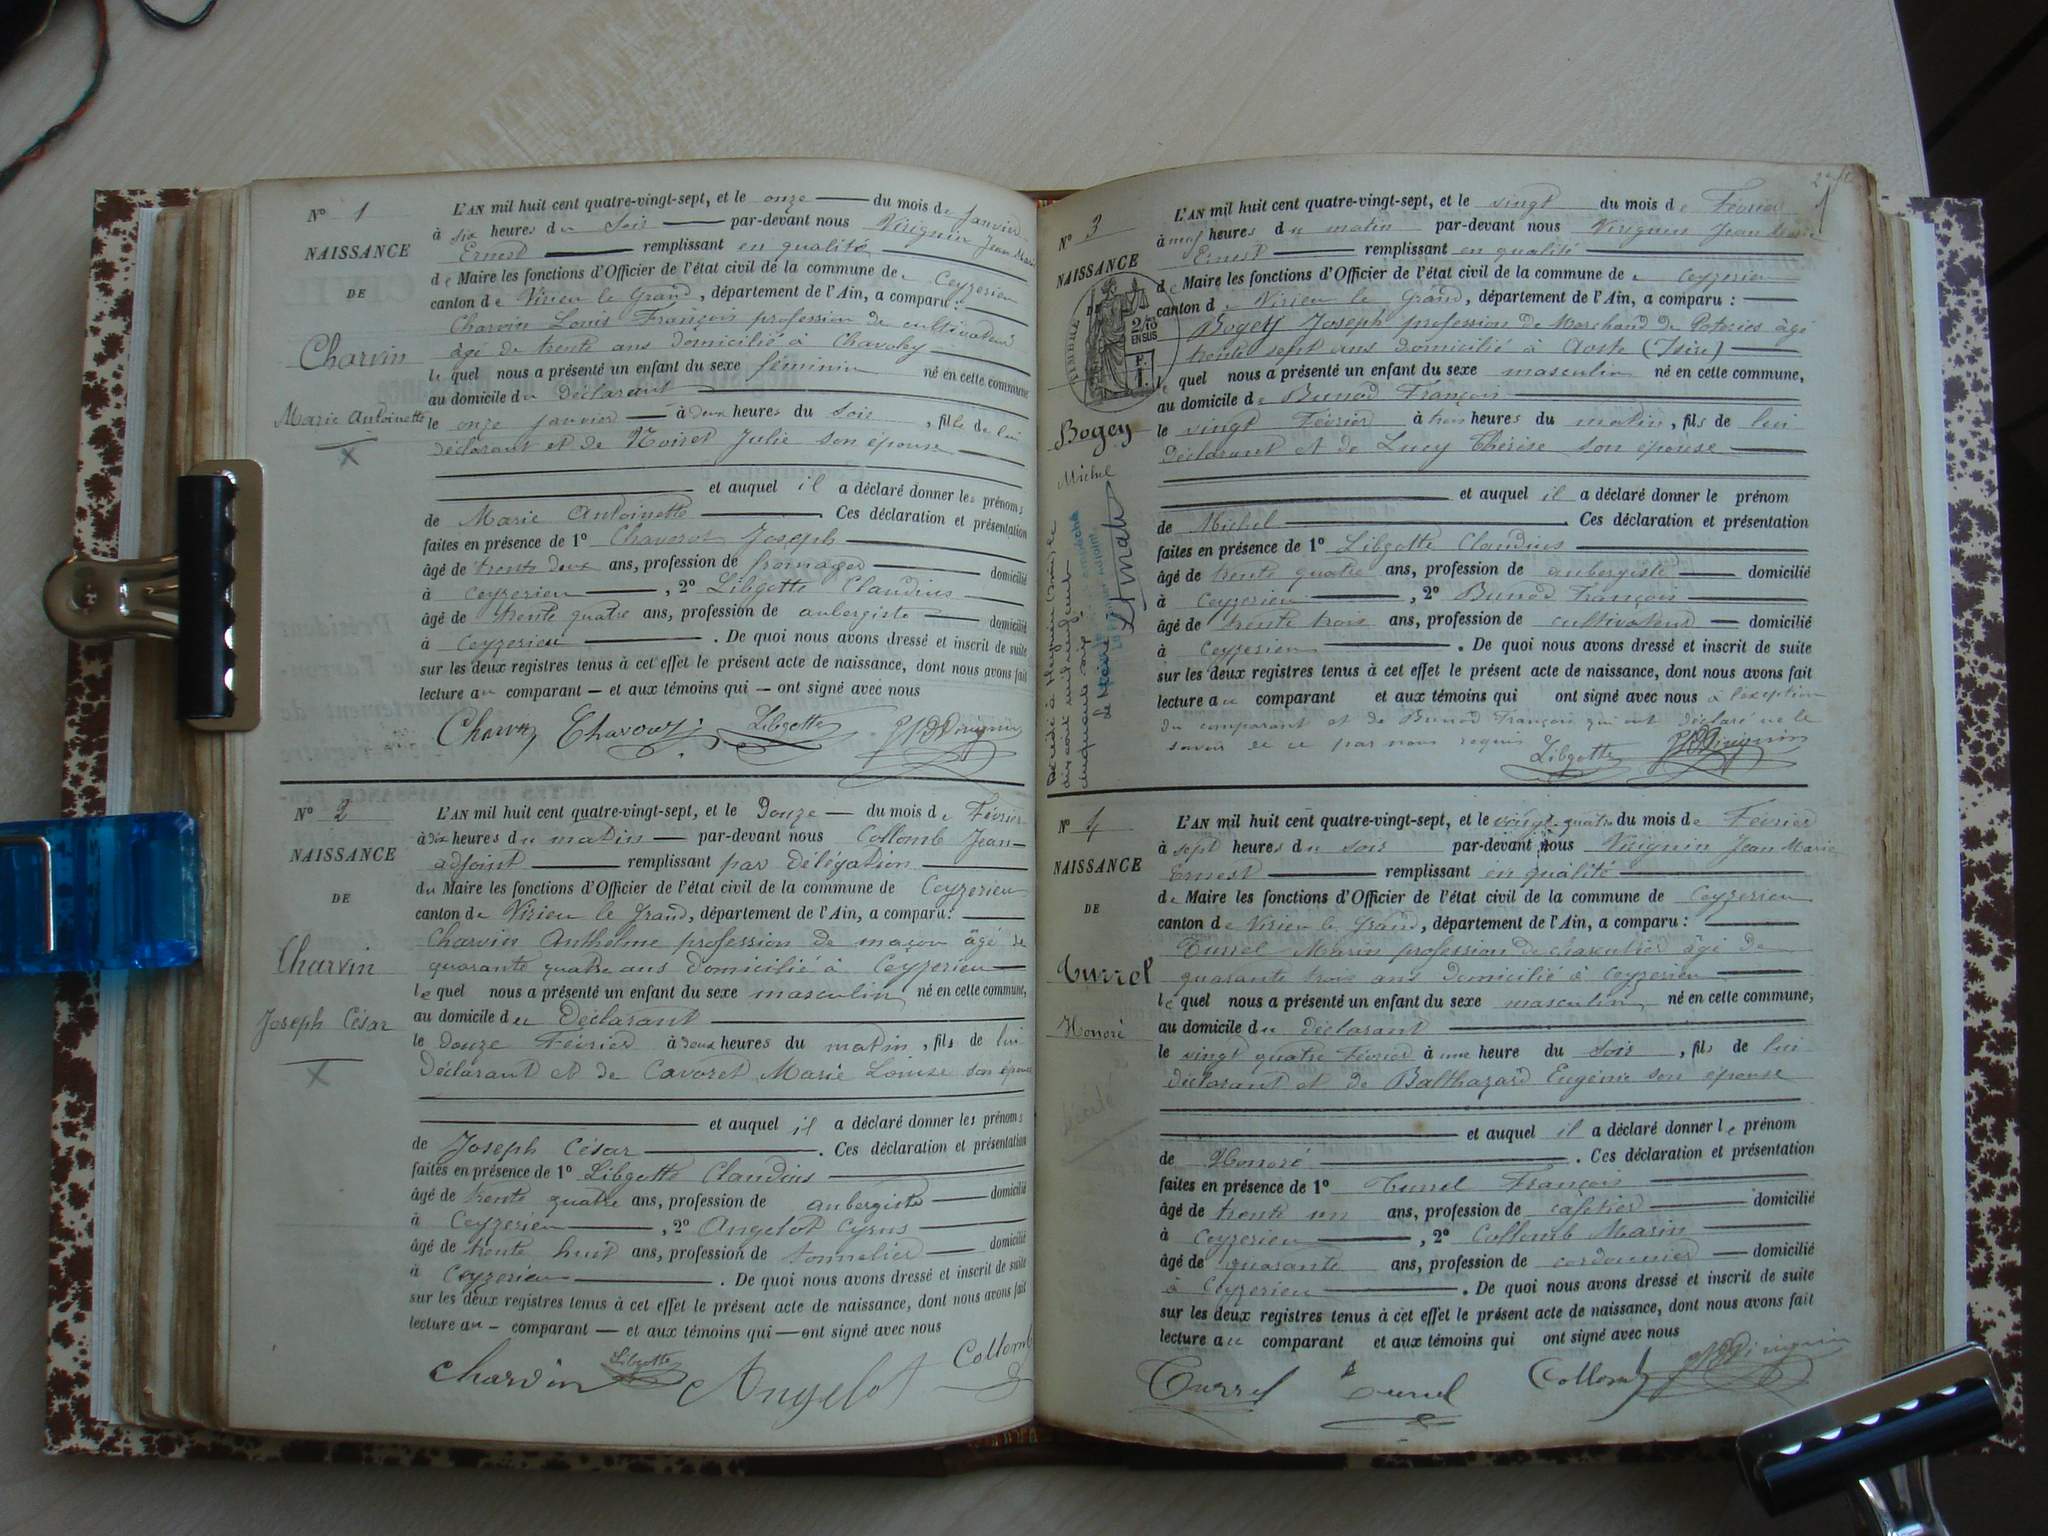 N° 1
NAISSANCE
DE
Charvin
Marie Antoinette
L'AN mil huit cent quatre-vingt-sept, et le onze du mois de janvier
à six heures du soir par-devant nous Virignin Jean Marie
Ernest remplissant en qualité
de Maire les fonctions d'Officier de l'état civil de la commune de Ceyzerieu
canton de Virieu le Grand, département de l'Ain, a comparu :
Charvin Louis François profession de cultivateur
âgé de trente ans domicilié à Chavoley
lequel nous a présenté un enfant du sexe féminin né en cette commune
au domicile du déclarant
le onze janvier à deux heures du soir, fille de lui
déclarant et de Noiret Julie son épouse
et auquel il a déclaré donner les prénoms
de Marie Antoinette. Ces déclaration et présentation
faites en présence de 1° Joseph
âgé de trente deux ans, profession de fromager domicilié
à Ceyzerieu, 2° Libgotte Claudius
âgé de trente quatre ans, profession de aubergiste domicilié
à Ceyzerieu. De quoi nous avons dressé et inscrit de suite
sur les deux registres tenus à cet effet le présent acte de naissance, dont nous avons fait
lecture au comparant et aux témoins qui ont signé avec nous
Charvin Libgotte Virignin
N° 2
NAISSANCE
DE
Charvin
Joseph César
L'AN mil huit cent quatre-vingt-sept, et le Douze du mois de Février
à dix heures du matin par-devant nous Collomb Jean
adjoint remplissant par délégation
du Maire les fonctions d'Officier de l'état civil de la commune de Ceyzerieu
canton de Virieu le Grand, département de l'Ain, a comparu :
Charvin Anthelme profession de maçon âgé de
quarante quatre ans domicilié à Ceyzerieu
lequel nous a présenté un enfant du sexe masculin né en cette commune,
au domicile du Déclarant
le douze Février à deux heures du matin, fils de lui
Déclarant et de Cavoret Marie Louise son épouse
et auquel il a déclaré donner les prénoms
de Joseph César. Ces déclaration et présentation
faites en présence de 1° Libgotte Claudius
âgé de trente quatre ans, profession de aubergiste domicilié
à Ceyzerieu, 2° Angelot Cyrus
âgé de trente huit ans, profession de tonnelier domicilié
à Ceyzerieu. De quoi nous avons dressé et inscrit de suite
sur les deux registres tenus à cet effet le présent acte de naissance, dont nous avons fait
lecture au comparant et aux témoins qui ont signé avec nous
Charvin Libgotte Angelot Collomb
N° 3
NAISSANCE
DE
TIMBRE
2/10
EN SUS
Bogey
Michel
L'AN mil huit cent quatre-vingt-sept, et le vingt du mois de Février
à neuf heures du matin par-devant nous Virignin Jean Marie
Ernest remplissant en qualité
de Maire les fonctions d'Officier de l'état civil de la commune de Ceyzerieu
canton de Virieu le Grand, département de l'Ain, a comparu :
Bogey Joseph profession de Marchand de Poteries âgé
trente sept ans domicilié à Aoste (Isère)
lequel nous a présenté un enfant du sexe masculin né en cette commune,
au domicile de Bunod François
le vingt Février à trois heures du matin, fils de lui
Déclarant et de Lucy Thérèse son épouse
et auquel il a déclaré donner le prénom
de Michel. Ces déclaration et présentation
faites en présence de 1° Libgotte Claudius
âgé de trente quatre ans, profession de aubergiste domicilié
à Ceyzerieu, 2° Bunod François
âgé de trente trois ans, profession de cultivateur domicilié
à Ceyzerieu. De quoi nous avons dressé et inscrit de suite
sur les deux registres tenus à cet effet le présent acte de naissance, dont nous avons fait
lecture au comparant et aux témoins qui ont signé avec nous à l'exception
du comparant et de Bunod François qui ont déclaré ne le
savoir de ce par nous requis
Libgotte Virignin
N° 4
NAISSANCE
DE
Turrel
Honoré
L'AN mil huit cent quatre-vingt-sept, et le vingt-quatre du mois de Février
à sept heures du soir par-devant nous Virignin Jean Marie
Ernest remplissant en qualité
de Maire les fonctions d'Officier de l'état civil de la commune de Ceyzerieu
canton de Virieu le Grand, département de l'Ain, a comparu :
Turrel Marin profession de charcutier âgé de
quarante trois ans domicilié à Ceyzerieu
lequel nous a présenté un enfant du sexe masculin né en cette commune,
au domicile du déclarant
le vingt quatre Février à une heure du soir, fils de lui
déclarant et de Balthazard Eugénie son épouse
et auquel il a déclaré donner le prénom
de Honoré. Ces déclaration et présentation
faites en présence de 1° Turrel François
âgé de trente un ans, profession de cafetier domicilié
à Ceyzerieu, 2° Collomb Marin
âgé de quarante ans, profession de cordonnier domicilié
à Ceyzerieu. De quoi nous avons dressé et inscrit de suite
sur les deux registres tenus à cet effet le présent acte de naissance, dont nous avons fait
lecture au comparant et aux témoins qui ont signé avec nous
Turrel Turrel Collomb Virignin